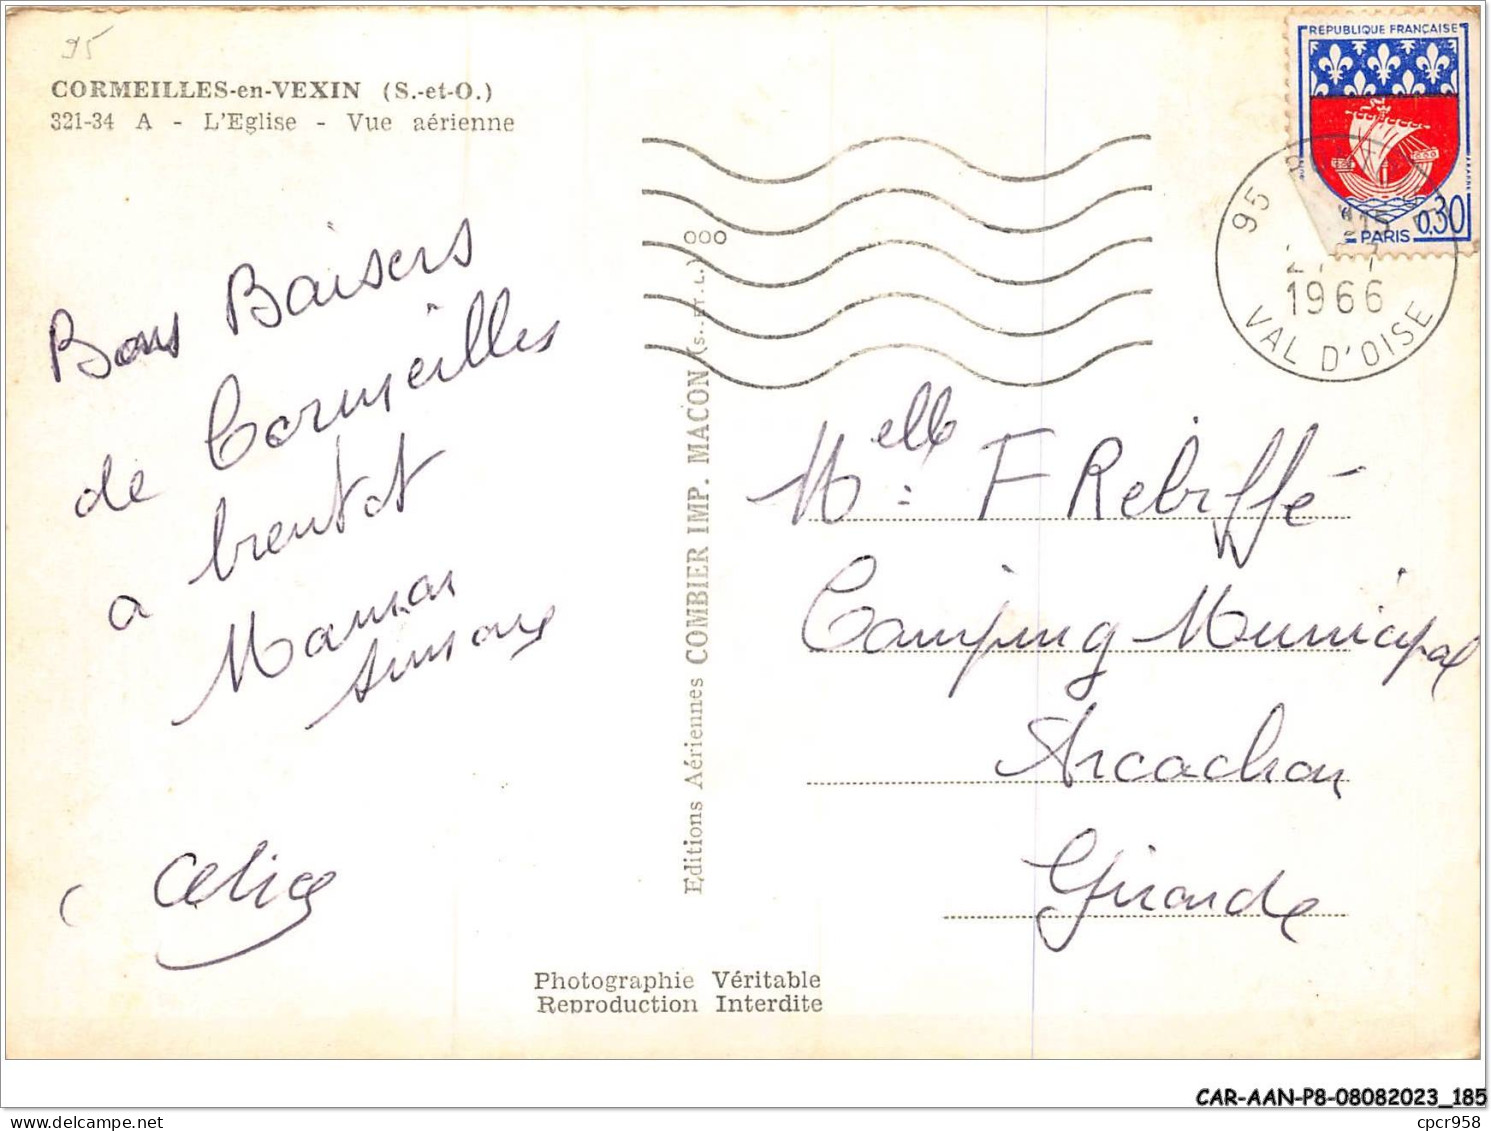 95
CORMEILLES-en-VEXIN (S.-et-O.)
321-34 A - L'Eglise - Vue aérienne
REPUBLIQUE FRANÇAISE
0,30
PARIS
95
1966
VAL D'OISE
000
Bons Baisers
de Cormeilles
a bientot
Maman
Celia
Editions Aériennes COMBIER IMP. MACON (S.-ET-L.)
Melle: F Rebiffé
Camping Municipal
Arcachon
Gironde
Photographie Véritable
Reproduction Interdite
CAR-AAN-P8-08082023_185
delcampe.net
cpcr958